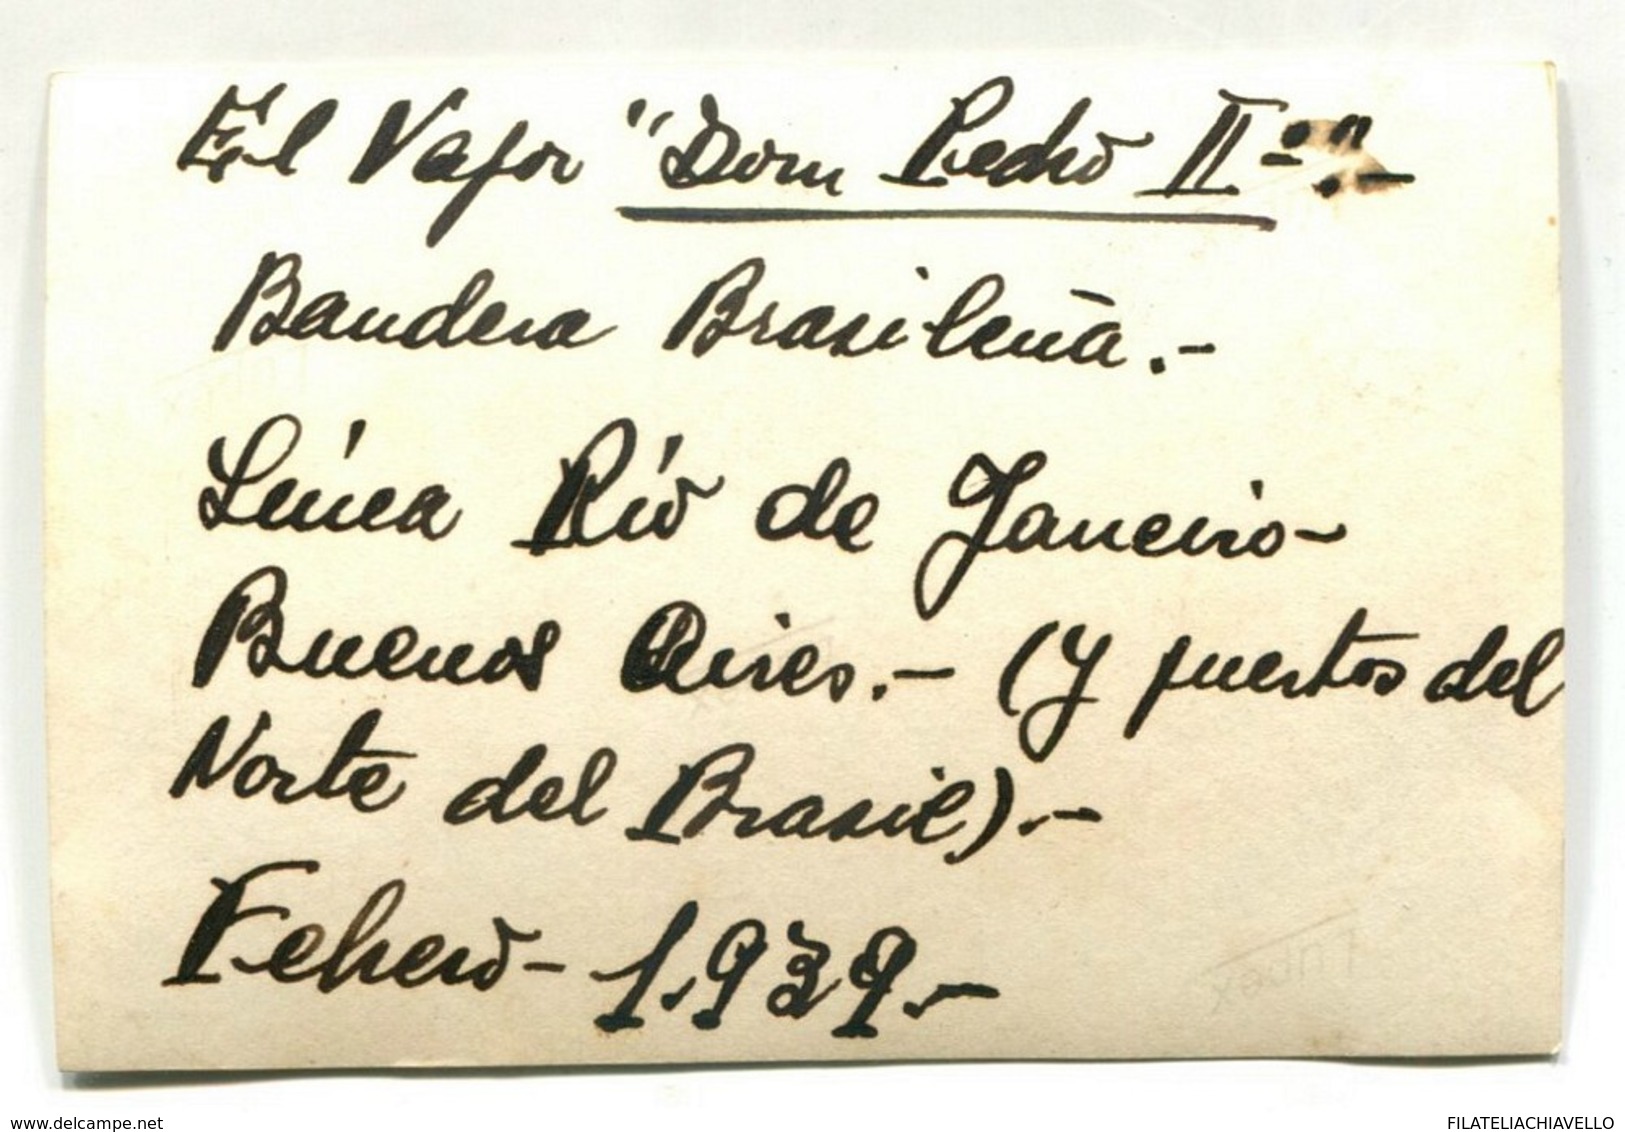 El Vapor "Dom Pedro IIº".-
Bandera Brasileña.-
Línea Río de Janeiro-
Buenos Aires.- (y puertos del
Norte del Brasil).-
Febrero- 1.939.-
delcampe.net
FILATELIACHIAVELLO